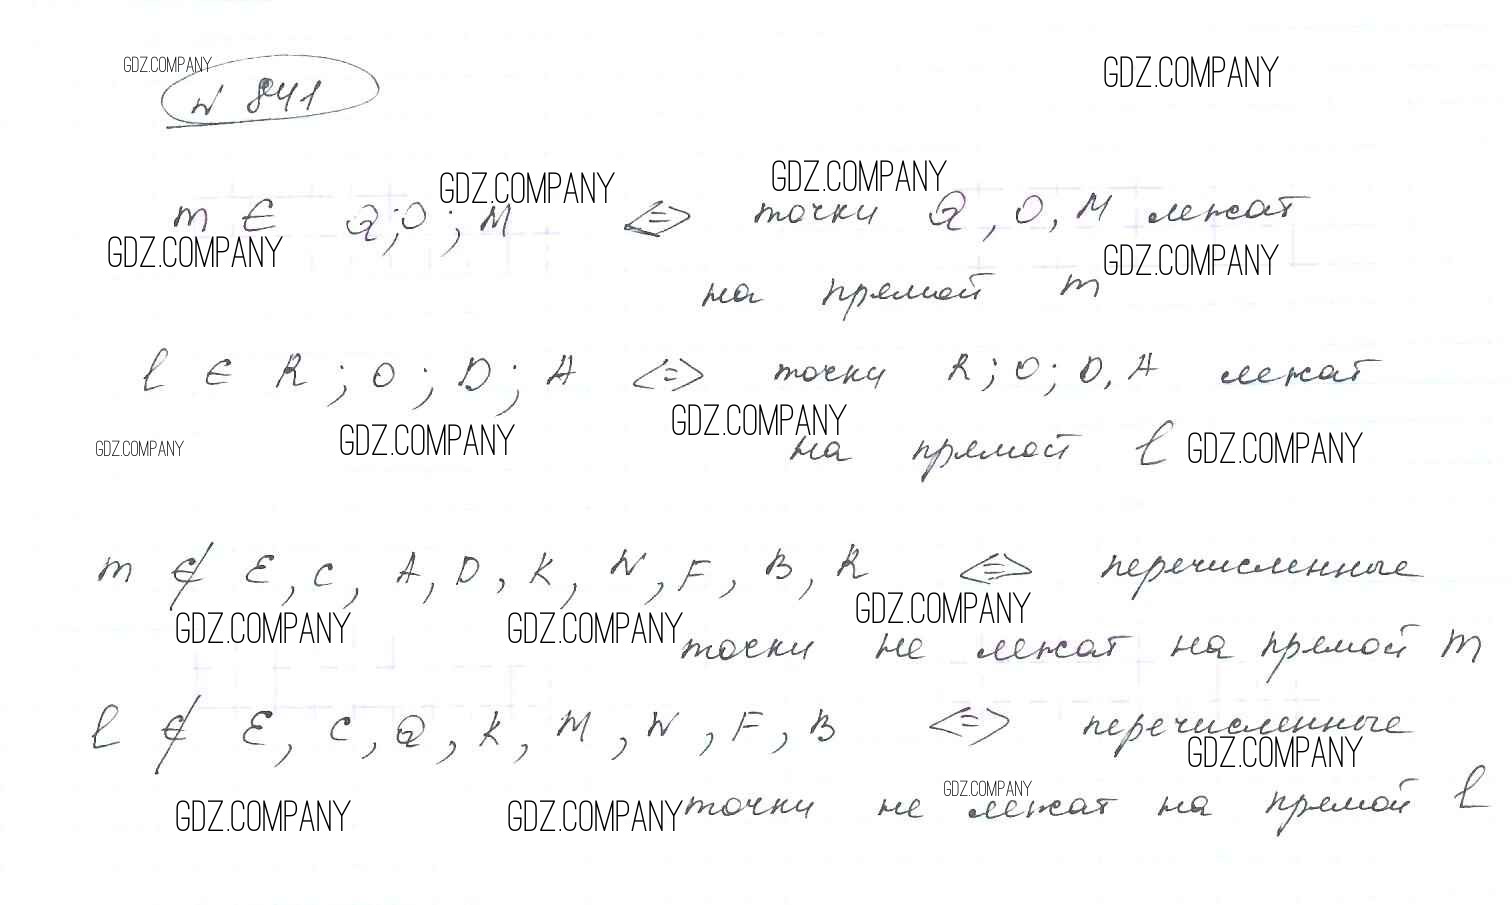 GDZ.COMPANY
GDZ.COMPANY
№ 841
GDZ.COMPANY GDZ.COMPANY
m ∈ Q; O; M <=> точки Q, O, M лежат
GDZ.COMPANY GDZ.COMPANY
на прямой m
l ∈ R; O; D; A <=> точки R; O; D, A лежат
GDZ.COMPANY GDZ.COMPANY GDZ.COMPANY GDZ.COMPANY
на прямой l
m ∉ E, C, A, D, K, N, F, B, R <=> перечисленные
GDZ.COMPANY GDZ.COMPANY GDZ.COMPANY
точки не лежат на прямой m
l ∉ E, C, Q, K, M, N, F, B <=> перечисленные
GDZ.COMPANY
GDZ.COMPANY GDZ.COMPANY GDZ.COMPANY
точки не лежат на прямой l